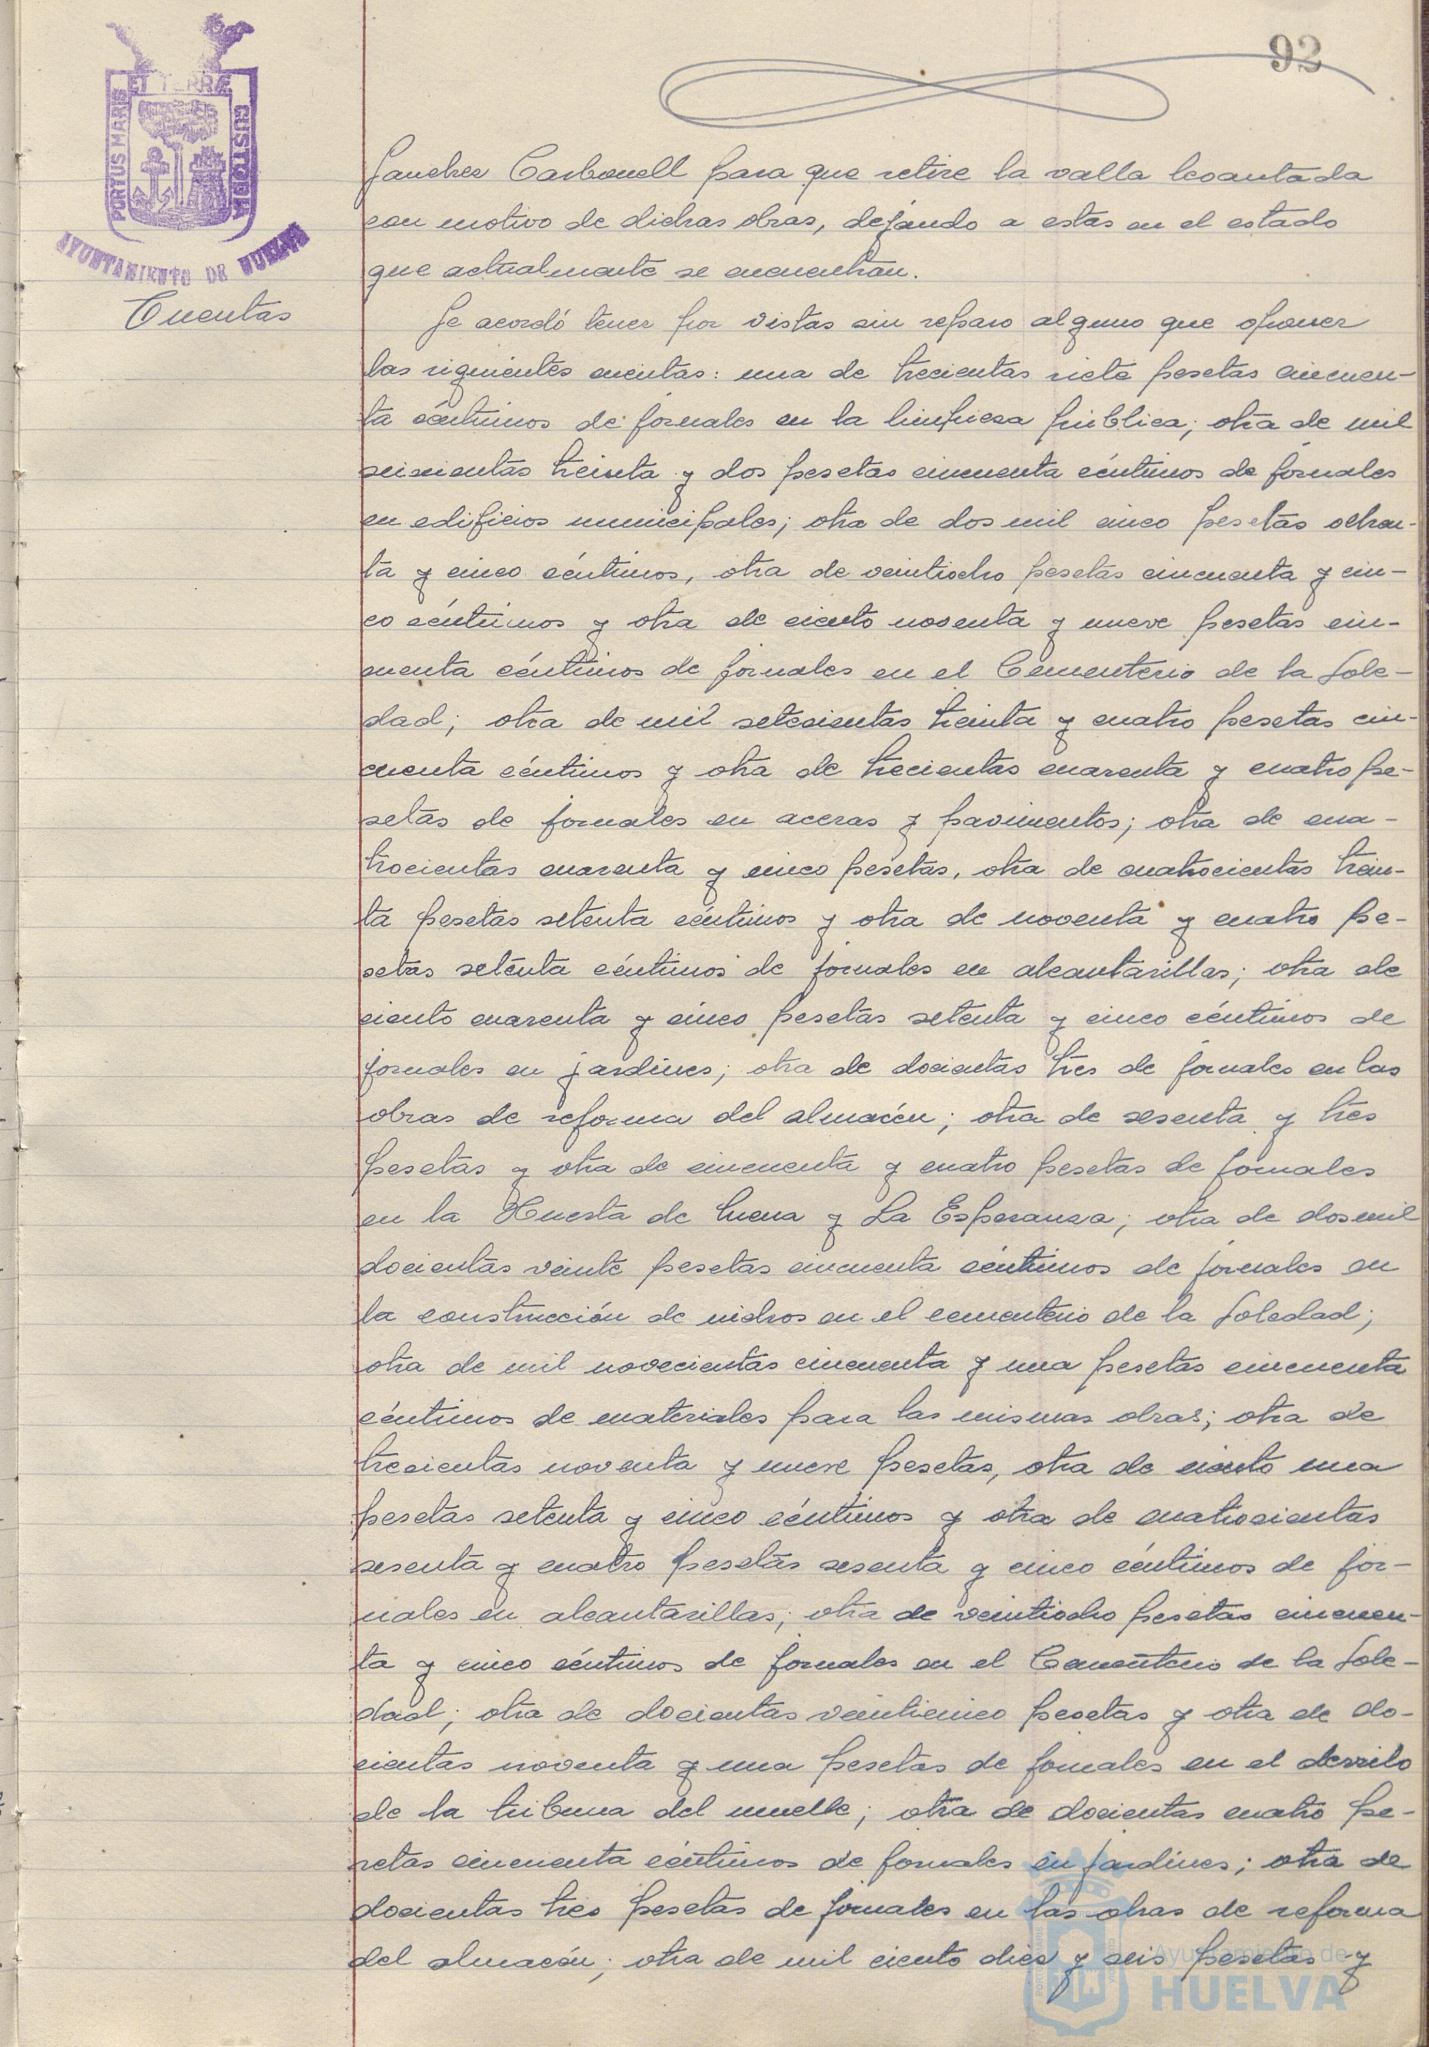 92
PORTUS MARIS ET TERRÆ CUSTODIA
AYUNTAMIENTO DE HUELVA
Cuentas
Sanchez Carbonell para que retire la valla levantada
con motivo de dichas obras, dejando a estas en el estado
que actualmente se encuentran.
Se acordó tener por vistas sin reparo alguno que oponer
las siguientes cuentas: una de trecientas siete pesetas cincuen-
ta céntimos de jornales en la limpieza pública; otra de mil
seiscientas treinta y dos pesetas cincuenta céntimos de jornales
en edificios municipales; otra de dos mil cinco pesetas ochen-
ta y cinco céntimos, otra de veintiocho pesetas cincuenta y cin-
co céntimos y otra de ciento noventa y nueve pesetas cin-
cuenta céntimos de jornales en el Cementerio de la Sole-
dad; otra de mil setecientas treinta y cuatro pesetas cin-
cuenta céntimos y otra de trecientas cuarenta y cuatro pe-
setas de jornales en aceras y pavimentos; otra de cua-
trocientas cuarenta y cinco pesetas, otra de cuatrocientas trein-
ta pesetas setenta céntimos y otra de noventa y cuatro pe-
setas setenta céntimos de jornales en alcantarillas; otra de
ciento cuarenta y cinco pesetas setenta y cinco céntimos de
jornales en jardines; otra de docientas tres de jornales en las
obras de reforma del almacén; otra de sesenta y tres
pesetas y otra de cincuenta y cuatro pesetas de jornales
en la Huerta de Mena y La Esperanza; otra de dos mil
docientas veinte pesetas cincuenta céntimos de jornales en
la construcción de nichos en el cementerio de la Soledad;
otra de mil novecientas cincuenta y una pesetas cincuenta
céntimos de materiales para las mismas obras; otra de
trecientas noventa y nueve pesetas, otra de ciento una
pesetas setenta y cinco céntimos y otra de cuatrocientas
sesenta y cuatro pesetas sesenta y cinco céntimos de jor-
nales en alcantarillas; otra de veintiocho pesetas cincuen-
ta y cinco céntimos de jornales en el Cementerio de la Sole-
dad; otra de docientas veinticinco pesetas y otra de do-
cientas noventa y una pesetas de jornales en el derribo
de la tribuna del muelle; otra de docientas cuatro pe-
setas cincuenta céntimos de jornales en jardines; otra de
docientas tres pesetas de jornales en las obras de reforma
del almacén; otra de mil ciento diez y seis pesetas y
Ayuntamiento de
HUELVA